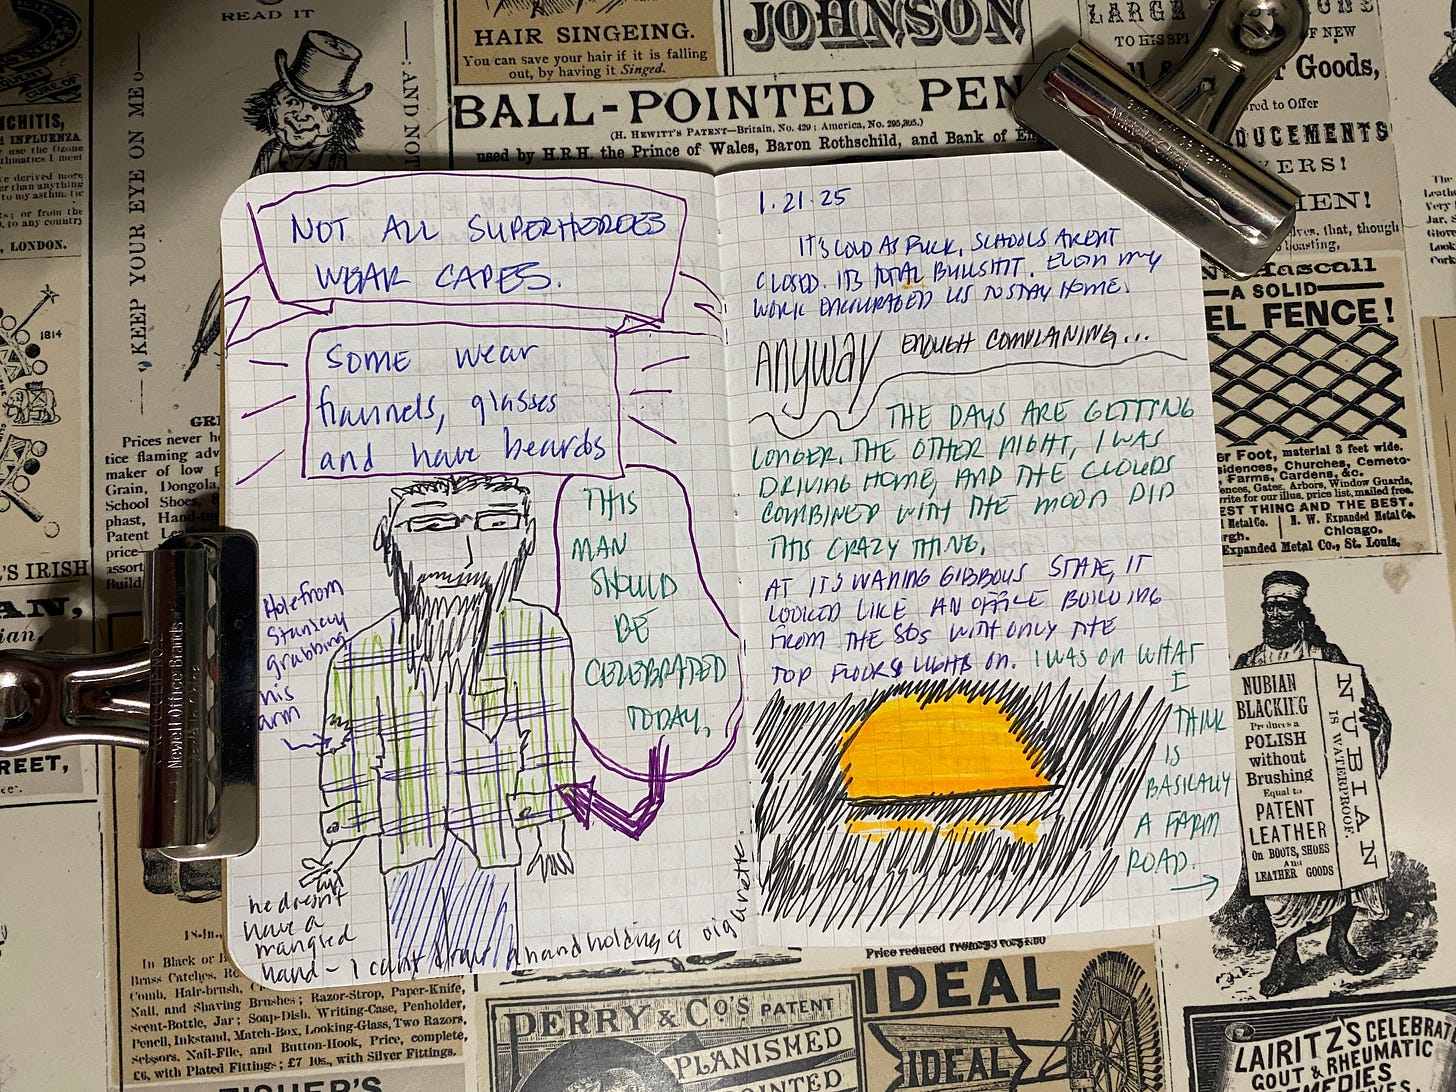 READ IT
KEEP YOUR EYE ON ME
AND NOT
HAIR SINGEING.
You can save your hair if it is falling
out, by having it Singed.
JOHNSON
BALL-POINTED PEN
(H. HEWITT'S PATENT—Britain, No. 429; America, No. 295,395.)
used by H.R.H. the Prince of Wales, Baron Rothschild, and Bank of
LARGE
TO HIS
OF NEW
Goods,
to Offer
DUCEMENTS
IEN!
that, though
boasting,
NCHITIS,
INFLUENZA
LONDON.
1814
NOT ALL SUPERHEROES
WEAR CAPES.
Some wear
flannels, glasses
and have beards
THIS
MAN
SHOULD
BE
CELEBRATED
TODAY,
Hole from
Stanley
grabbing
his
arm
he doesn't
have a
mangled
hand - I can't draw a hand holding a cigarette.
1.21.25
IT'S COLD AS FUCK. SCHOOLS AREN'T
CLOSED. ITS TOTAL BULLSHIT. EVEN MY
WORK ENCOURAGED US TO STAY HOME.
Anyway ENOUGH COMPLAINING...
THE DAYS ARE GETTING
LONGER. THE OTHER NIGHT, I WAS
DRIVING HOME, AND THE CLOUDS
COMBINED WITH THE MOON DID
THIS CRAZY THING.
AT ITS WANING GIBBOUS STATE, IT
LOOKED LIKE AN OFFICE BUILDING
FROM THE 80s WITH ONLY THE
TOP FLOORS LIGHTS ON. I WAS ON WHAT
I
THINK
IS
BASICALLY
A FARM
ROAD.
Hascall
A SOLID
EL FENCE!
Foot, material 3 feet wide.
Churches, Cemeto-
Farms, Gardens, &c.
Gates, Arbors, Window Guards,
write for our illus. price list, mailed free.
EST THING AND THE BEST.
N. W. Expanded Metal Co.,
Chicago.
Expanded Metal Co., St. Louis,
NUBIAN
BLACKING
Produces a
POLISH
without
Brushing
Equal to
PATENT
LEATHER
ON BOOTS, SHOES
And
LEATHER GOODS
NUBIAN
IS WATERPROOF.
Prices never
tice flaming
maker of low
Grain, Dongola,
School Shoes,
Patent
price
assort
Build
'S IRISH
AN,
REET,
Newell Office Brands
In Black or
Brass Catches,
Comb, Hair-brush,
Nail, and Shaving Brushes; Razor-Strop, Paper-Knife,
Scent-Bottle, Jar; Soap-Dish, Writing-Case, Penholder,
Pencil, Inkstand, Match-Box, Looking-Glass, Two Razors,
Scissors, Nail-File, and Button-Hook, Price, complete,
£6, with Plated Fittings; £7 10s., with Silver Fittings.
FISHER'S
PERRY & Co's PATENT
PLANISHED
POINTED
Price reduced from
IDEAL
IDEAL
LAIRITZ'S CELEBRAT
GOUT & RHEUMATIC